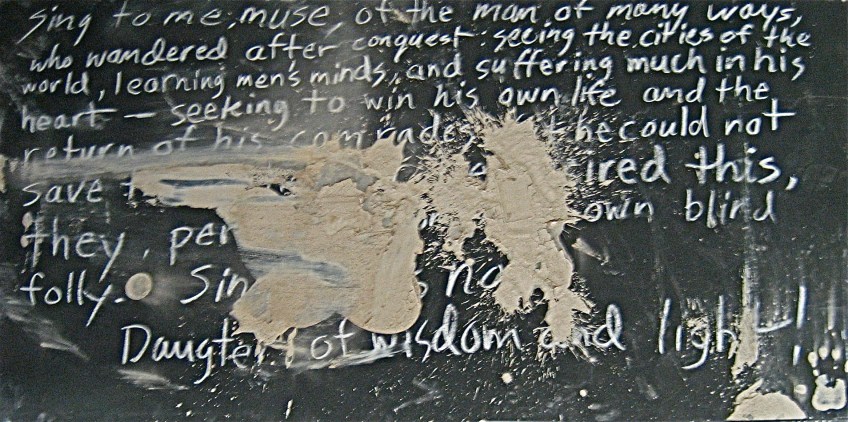 Sing to me, muse, of the man of many ways,
who wandered after conquest: seeing the cities of the
world, learning men's minds, and suffering much in his
heart — seeking to win his own life and the
return of his comrades he could not
save this,
they, own blind
folly. Sin
Daugter of wisdom and light!